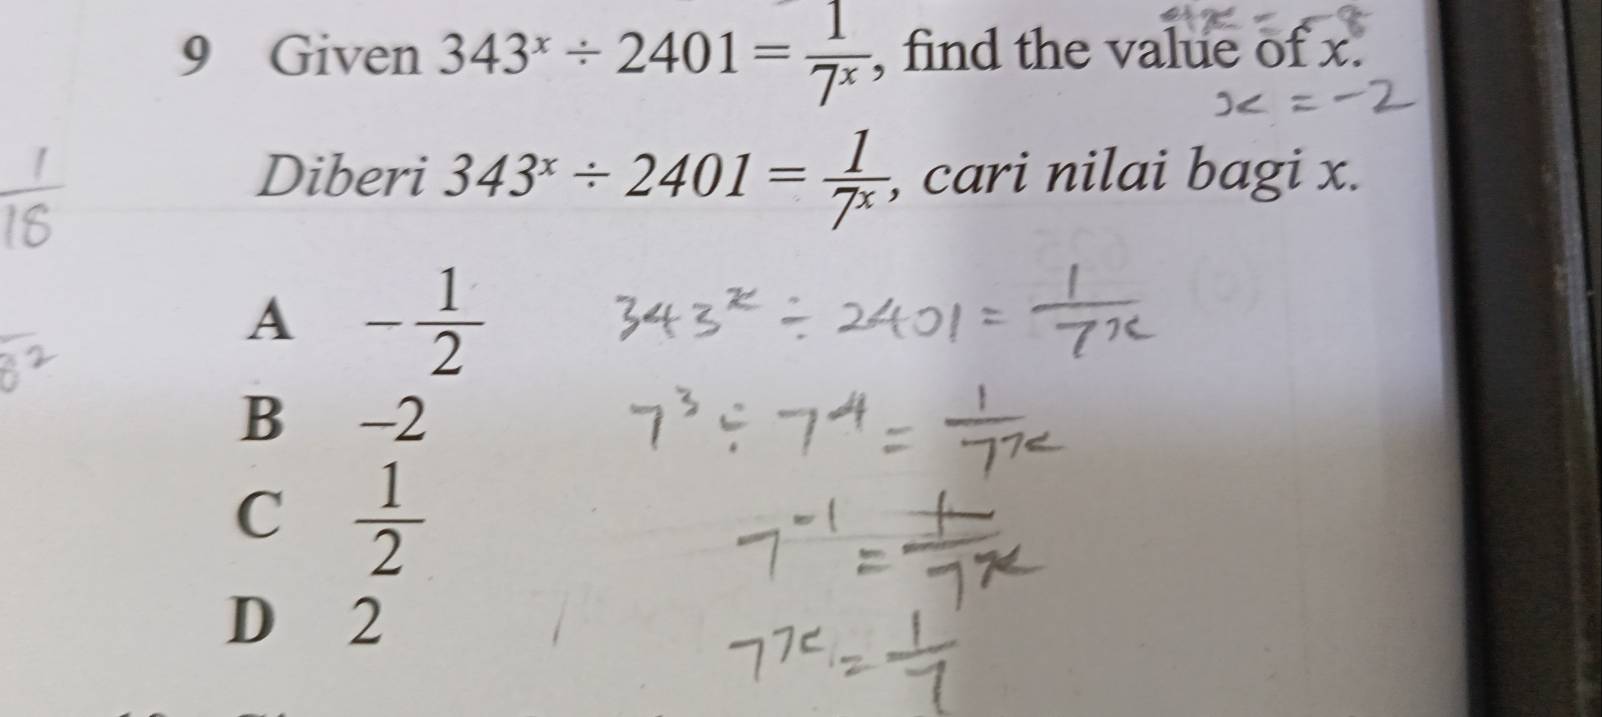 9 Given 343ˣ ÷ 2401 = 1/7ˣ, find the value of x.
x = -2
Diberi 343ˣ ÷ 2401 = 1/7ˣ, cari nilai bagi x.
1/18
A -1/2
343ˣ ÷ 2401 = 1/7ˣ
B -2
7³ ÷ 7⁴ = 1/7ˣ
C 1/2
7⁻¹ = 1/7ˣ
D 2
7ˣ = 1/7